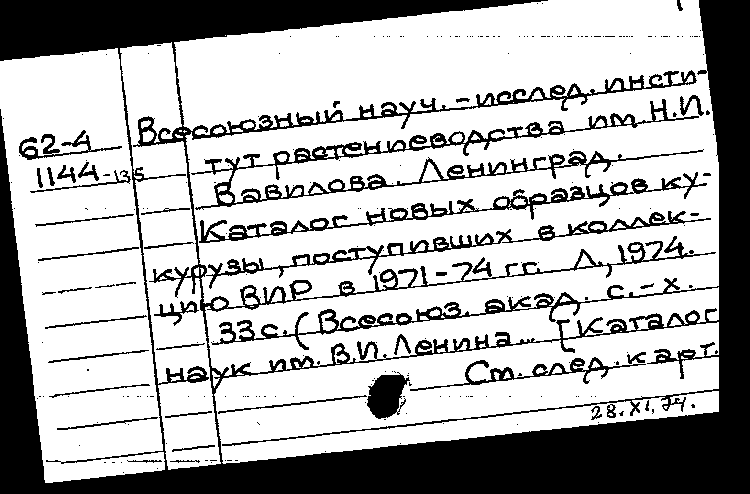 62-4 Всесоюзный науч.-исслед. инсти-
1144-135 тут растениеводства им. Н.И.
Вавилова. Ленинград.
Каталог новых образцов ку-
курузы, поступивших в коллек-
цию ВИР в 1971-74 гг. Л., 1974.
33 с. (Всесоюз. акад. с.-х.
наук им. В.И. Ленина... [Каталог
См. след. карт.
28.XI.74.